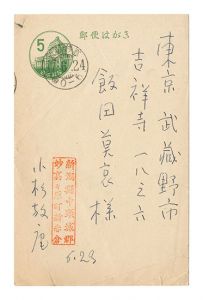 郵便はがき
5
24
東京 武蔵野市
吉祥寺一八三六
飯田莫哀様
新潟県中頸城郡
小杉放庵
6.23